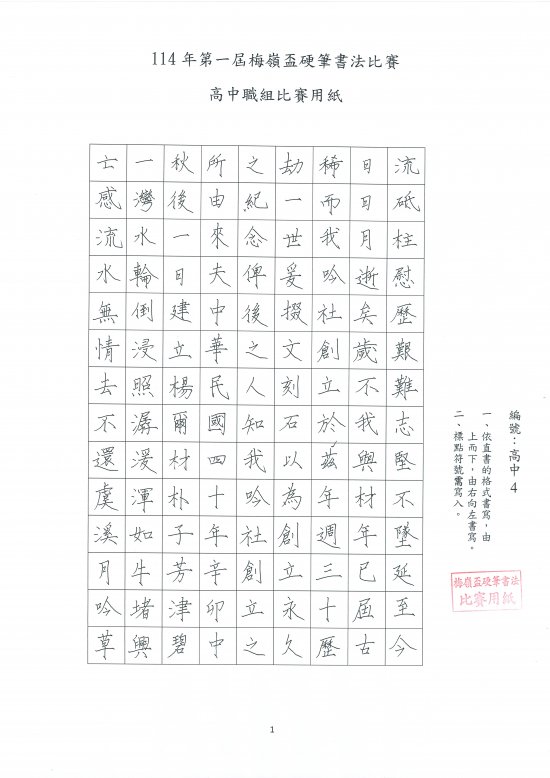 114 年第一屆梅嶺盃硬筆書法比賽
高中職組比賽用紙
編號：高中 4
一、依直書的格式書寫，由
上而下，由右向左書寫。
二、標點符號需寫入。
梅嶺盃硬筆書法
比賽用紙
流砥柱慰歷艱難志堅不墜延至今
日日月逝矣歲不我與材年已屆古
稀而我吟社創立於茲年週三十歷
劫一世爰掇文刻石以為創立永久
之紀念俾後之人知我吟社創立之
所由來夫中華民國四十年辛卯中
秋後一日建立楊爾材朴子芳津碧
一灣水輪倒浸照潺湲渾如牛堵興
亡感流水無情去不還虞溪月吟草
1